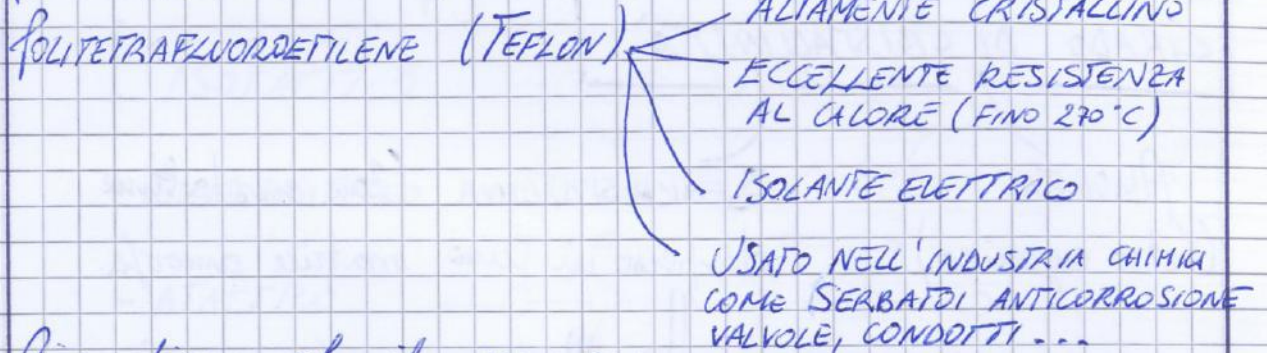 POLITETRAFLUOROETILENE (TEFLON)
ALTAMENTE CRISTALLINO
ECCELLENTE RESISTENZA
AL CALORE (FINO 270°C)
ISOLANTE ELETTRICO
USATO NELL'INDUSTRIA CHIMICA
COME SERBATOI ANTICORROSIONE
VALVOLE, CONDOTTI...